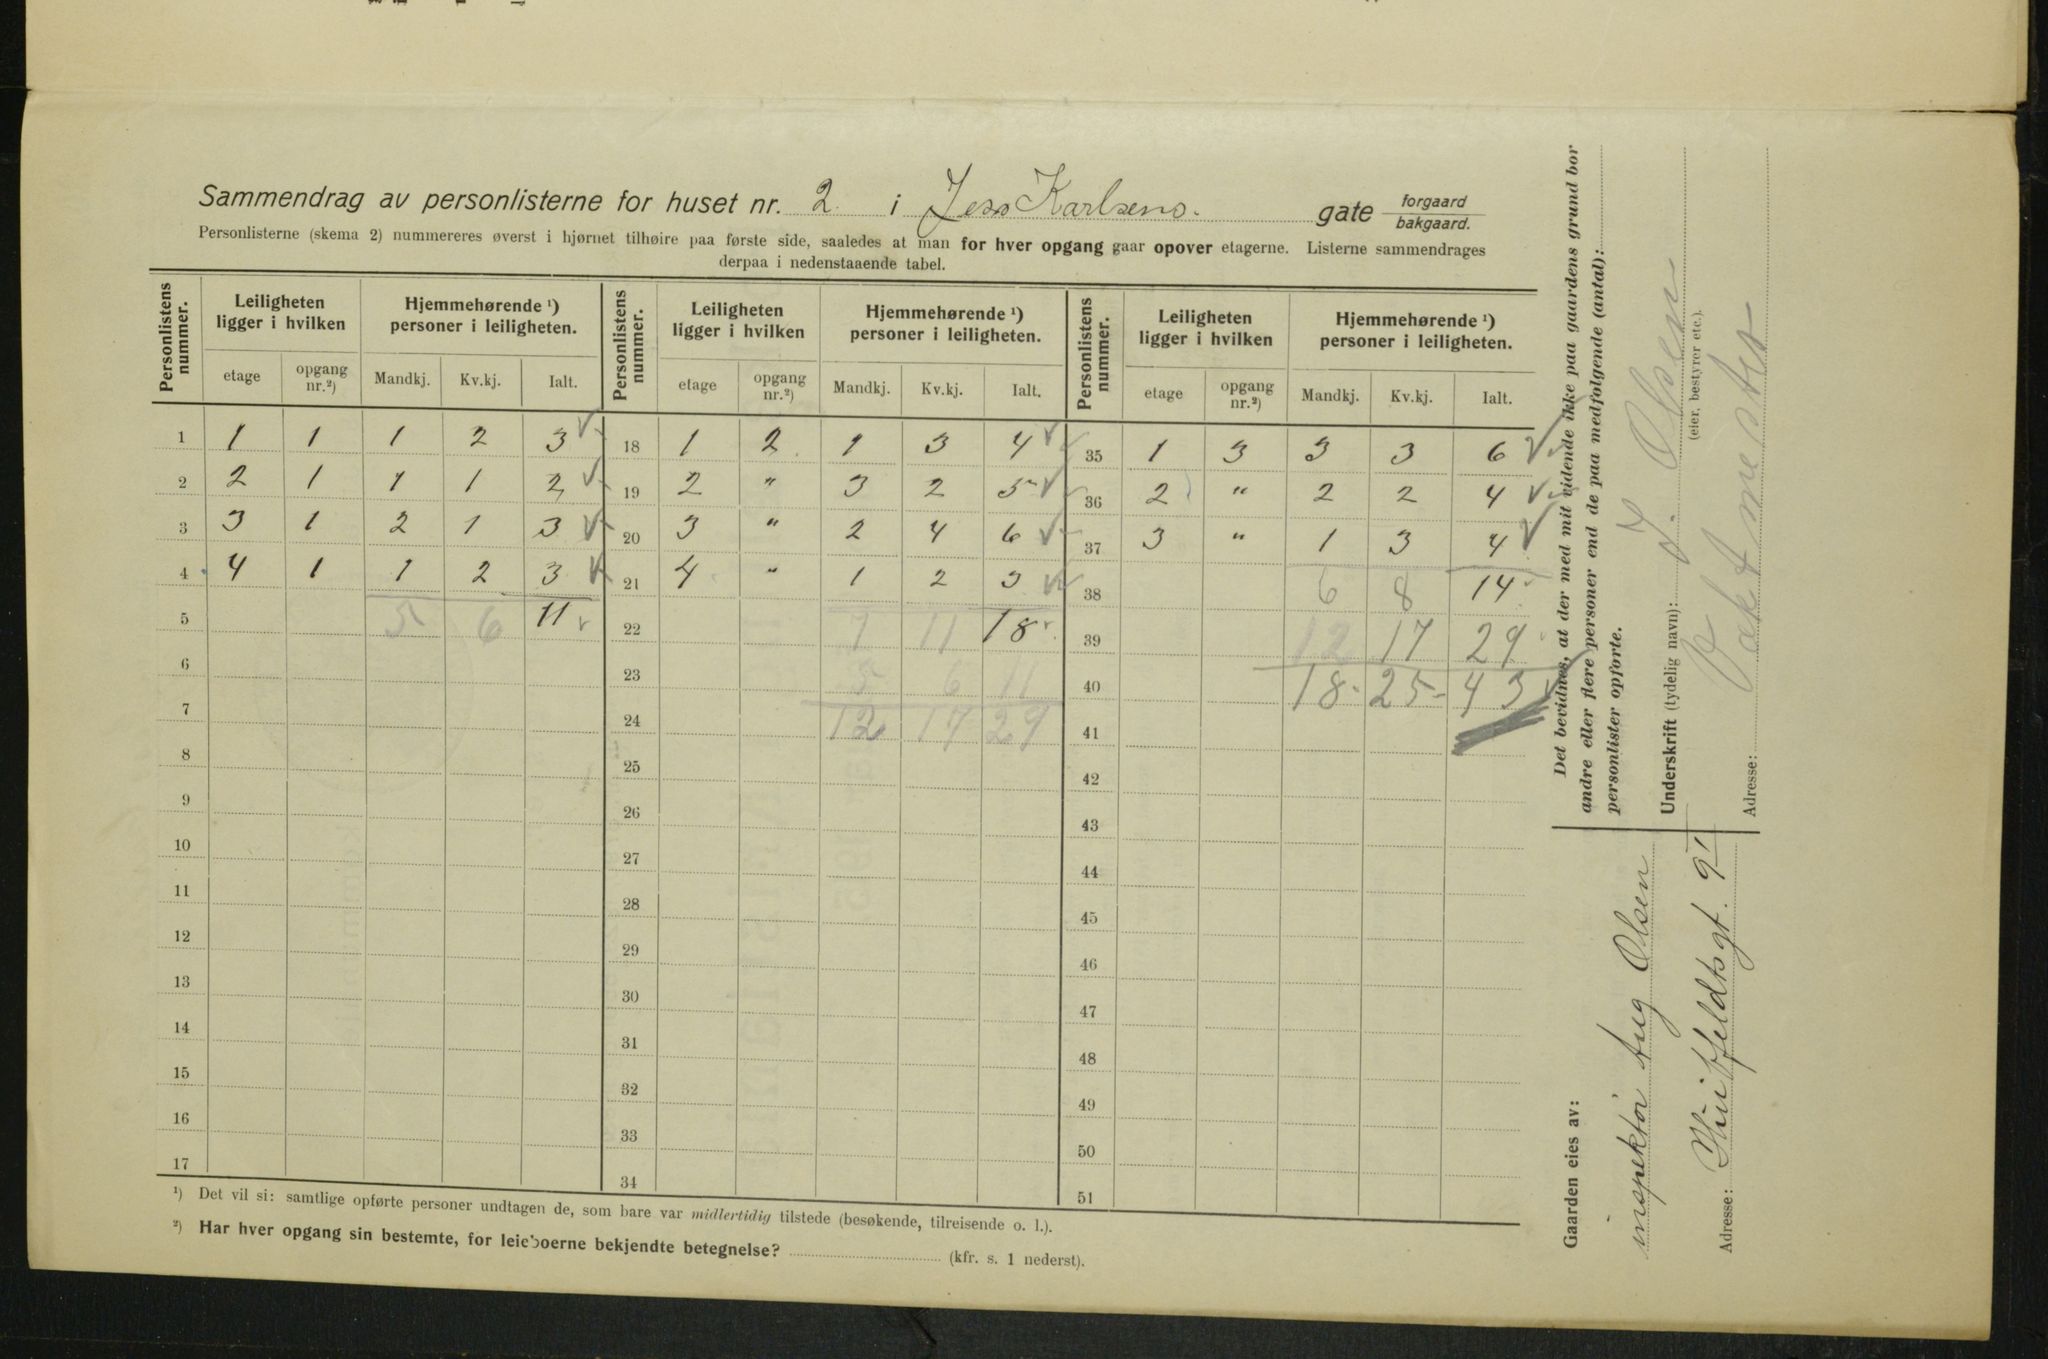 Sammendrag av personlisterne for huset nr. 2 i Jess Karlsens. gate forgaard bakgaard.
Personlisterne (skema 2) nummereres øverst i hjørnet tilhøire paa første side, saaledes at man for hver opgang gaar opover etagerne. Listerne sammendrages
derpaa i nedenstaaende tabel.
Personlistens nummer. Leiligheten ligger i hvilken Hjemmehørende ¹) personer i leiligheten. Personlistens nummer. Leiligheten ligger i hvilken Hjemmehørende ¹) personer i leiligheten. Personlistens nummer. Leiligheten ligger i hvilken Hjemmehørende ¹) personer i leiligheten.
etage opgang nr.²) Mandkj. Kv.kj. Ialt. etage opgang nr.²) Mandkj. Kv.kj. Ialt. etage opgang nr.²) Mandkj. Kv.kj. Ialt.
1 1 1 1 2 3 18 1 2 1 3 4 35 1 3 3 3 6
2 2 1 1 1 2 19 2 " 3 2 5 36 2 " 2 2 4
3 3 1 2 1 3 20 3 " 2 4 6 37 3 " 1 3 4
4 4 1 1 2 3 21 4 " 1 2 3 38 6 8 14
5 5 6 11 22 7 11 18 39 12 17 29
6 23 5 6 11 40 18 - 25 - 43
7 24 12 17 29 41
8 25 42
9 26 43
10 27 44
11 28 45
12 29 46
13 30 47
14 31 48
15 32 49
16 33 50
17 34 51
¹) Det vil si: samtlige opførte personer undtagen de, som bare var midlertidig tilstede (besøkende, tilreisende o. l.).
²) Har hver opgang sin bestemte, for leieboerne bekjendte betegnelse? (kfr. s. 1 nederst).
Det bevidnes, at der med mit vidende ikke paa gaardens grund bor
andre eller flere personer end de paa medfølgende (antal):
personlister opførte.
Underskrift (tydelig navn): J. Olsen
(eier, bestyrer etc.).
Vaktmester
Adresse:
Gaarden eies av:
inspektør Aug Olsen
Adresse: Huitfeldtsgt. 91